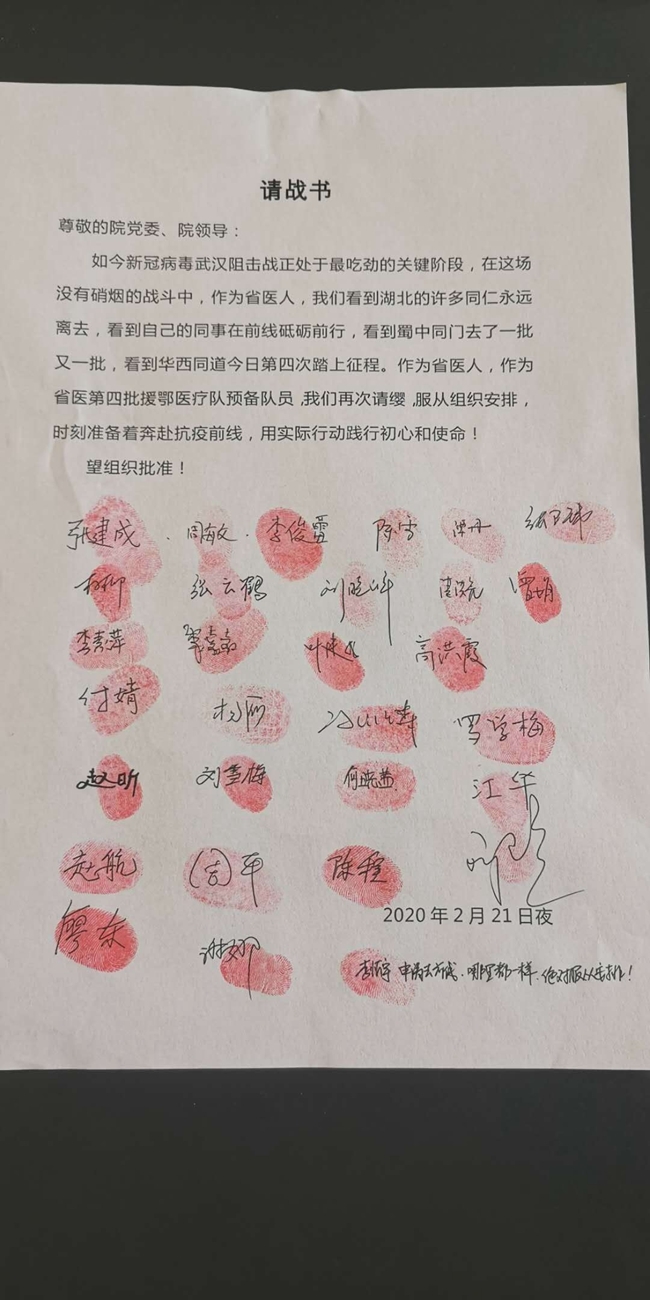 请战书
尊敬的院党委、院领导：
如今新冠病毒武汉阻击战正处于最吃劲的关键阶段，在这场
没有硝烟的战斗中，作为省医人，我们看到湖北的许多同仁永远
离去，看到自己的同事在前线砥砺前行，看到蜀中同门去了一批
又一批，看到华西同道今日第四次踏上征程。作为省医人，作为
省医第四批援鄂医疗队预备队员，我们再次请缨，服从组织安排，
时刻准备着奔赴抗疫前线，用实际行动践行初心和使命！
望组织批准！
张建成 周敏 李俊蕾 陈雪
杨柳 张云鹤 刘晓
李青萍 高洪霞
付婧 杨丽 罗学梅
赵昕 刘雪梅 何晓燕 江华
赵航 周平 陈程
2020年2月21日夜
廖东 谢娜
哪里都一样